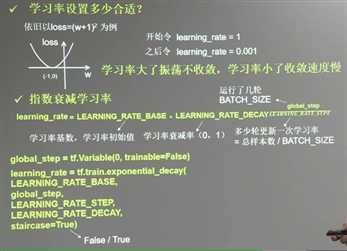 ✓ 学习率设置多少合适？
依旧以loss=(w+1)² 为例
loss
(-1,0)
w
开始令 learning_rate = 1
之后令 learning_rate = 0.001
学习率大了振荡不收敛，学习率小了收敛速度慢
✓ 指数衰减学习率
运行了几轮
BATCH_SIZE
global_step
learning_rate = LEARNING_RATE_BASE * LEARNING_RATE_DECAY LEARNING_RATE_STEP
学习率基数，学习率初始值
学习率衰减率（0，1）
多少轮更新一次学习率
= 总样本数 / BATCH_SIZE
global_step = tf.Variable(0, trainable=False)
learning_rate = tf.train.exponential_decay(
LEARNING_RATE_BASE,
global_step,
LEARNING_RATE_STEP,
LEARNING_RATE_DECAY,
staircase=True)
False / True